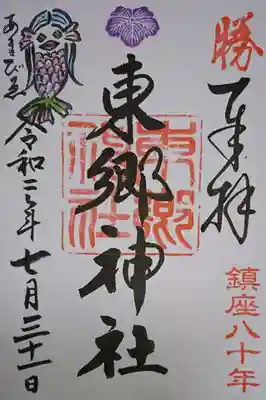 勝
奉拝
鎮座八十年
東郷神社
東郷神社
あまびゑ
令和二年七月三十一日